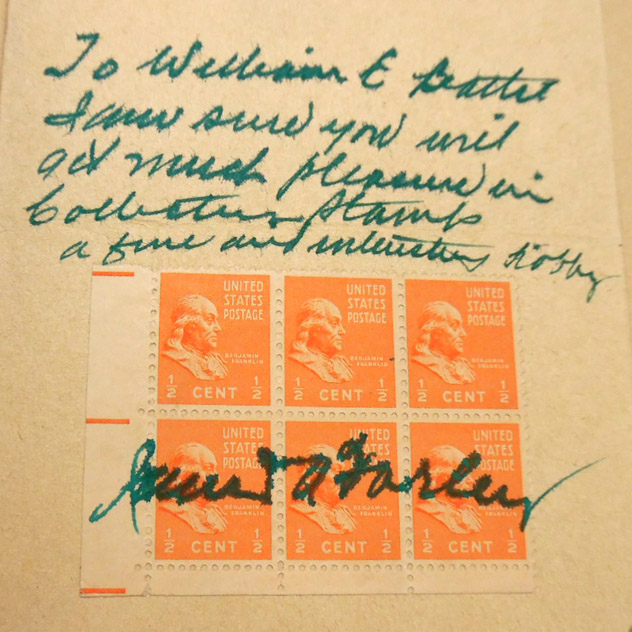 To William E Beattie
I am sure you will
get much pleasure in
Collecting Stamps
a fine and interesting hobby
UNITED STATES POSTAGE
BENJAMIN FRANKLIN
1/2 CENT 1/2
UNITED STATES POSTAGE
BENJAMIN FRANKLIN
1/2 CENT 1/2
UNITED STATES POSTAGE
BENJAMIN FRANKLIN
1/2 CENT 1/2
James A Farley
UNITED STATES
BENJAMIN FRANKLIN
1/2 CENT 1/2
UNITED STATES
BENJAMIN FRANKLIN
1/2 CENT 1/2
UNITED STATES
BENJAMIN FRANKLIN
1/2 CENT 1/2